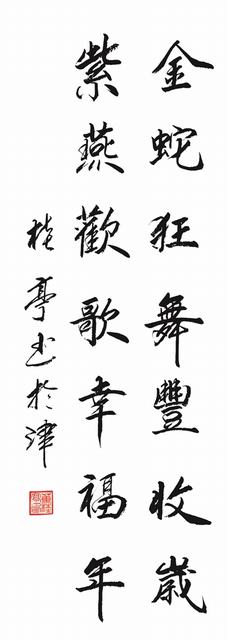 金蛇狂舞豐收歲
紫燕歡歌幸福年
桂亭书於津